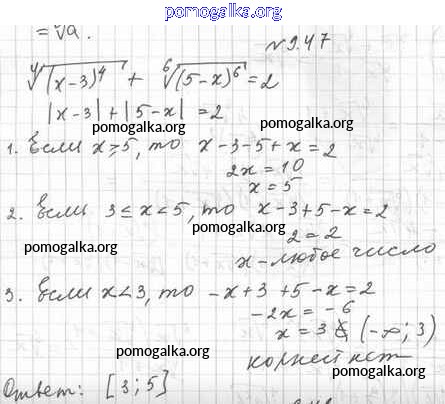 pomogalka.org
= ⁿ√a .
№9.47
⁴√(x-3)⁴ + ⁶√(5-x)⁶ = 2
|x-3| + |5-x| = 2
pomogalka.org pomogalka.org
1. Если x ≥ 5, то x-3-5+x = 2
2x = 10
x = 5
2. Если 3 ≤ x < 5, то x-3+5-x = 2
pomogalka.org
2 = 2
pomogalka.org
x - любое число
3. Если x < 3, то -x+3+5-x = 2
-2x = -6
pomogalka.org
x = 3 ∉ (-∞; 3)
pomogalka.org
корней нет
Ответ: [3; 5]
pomogalka.org